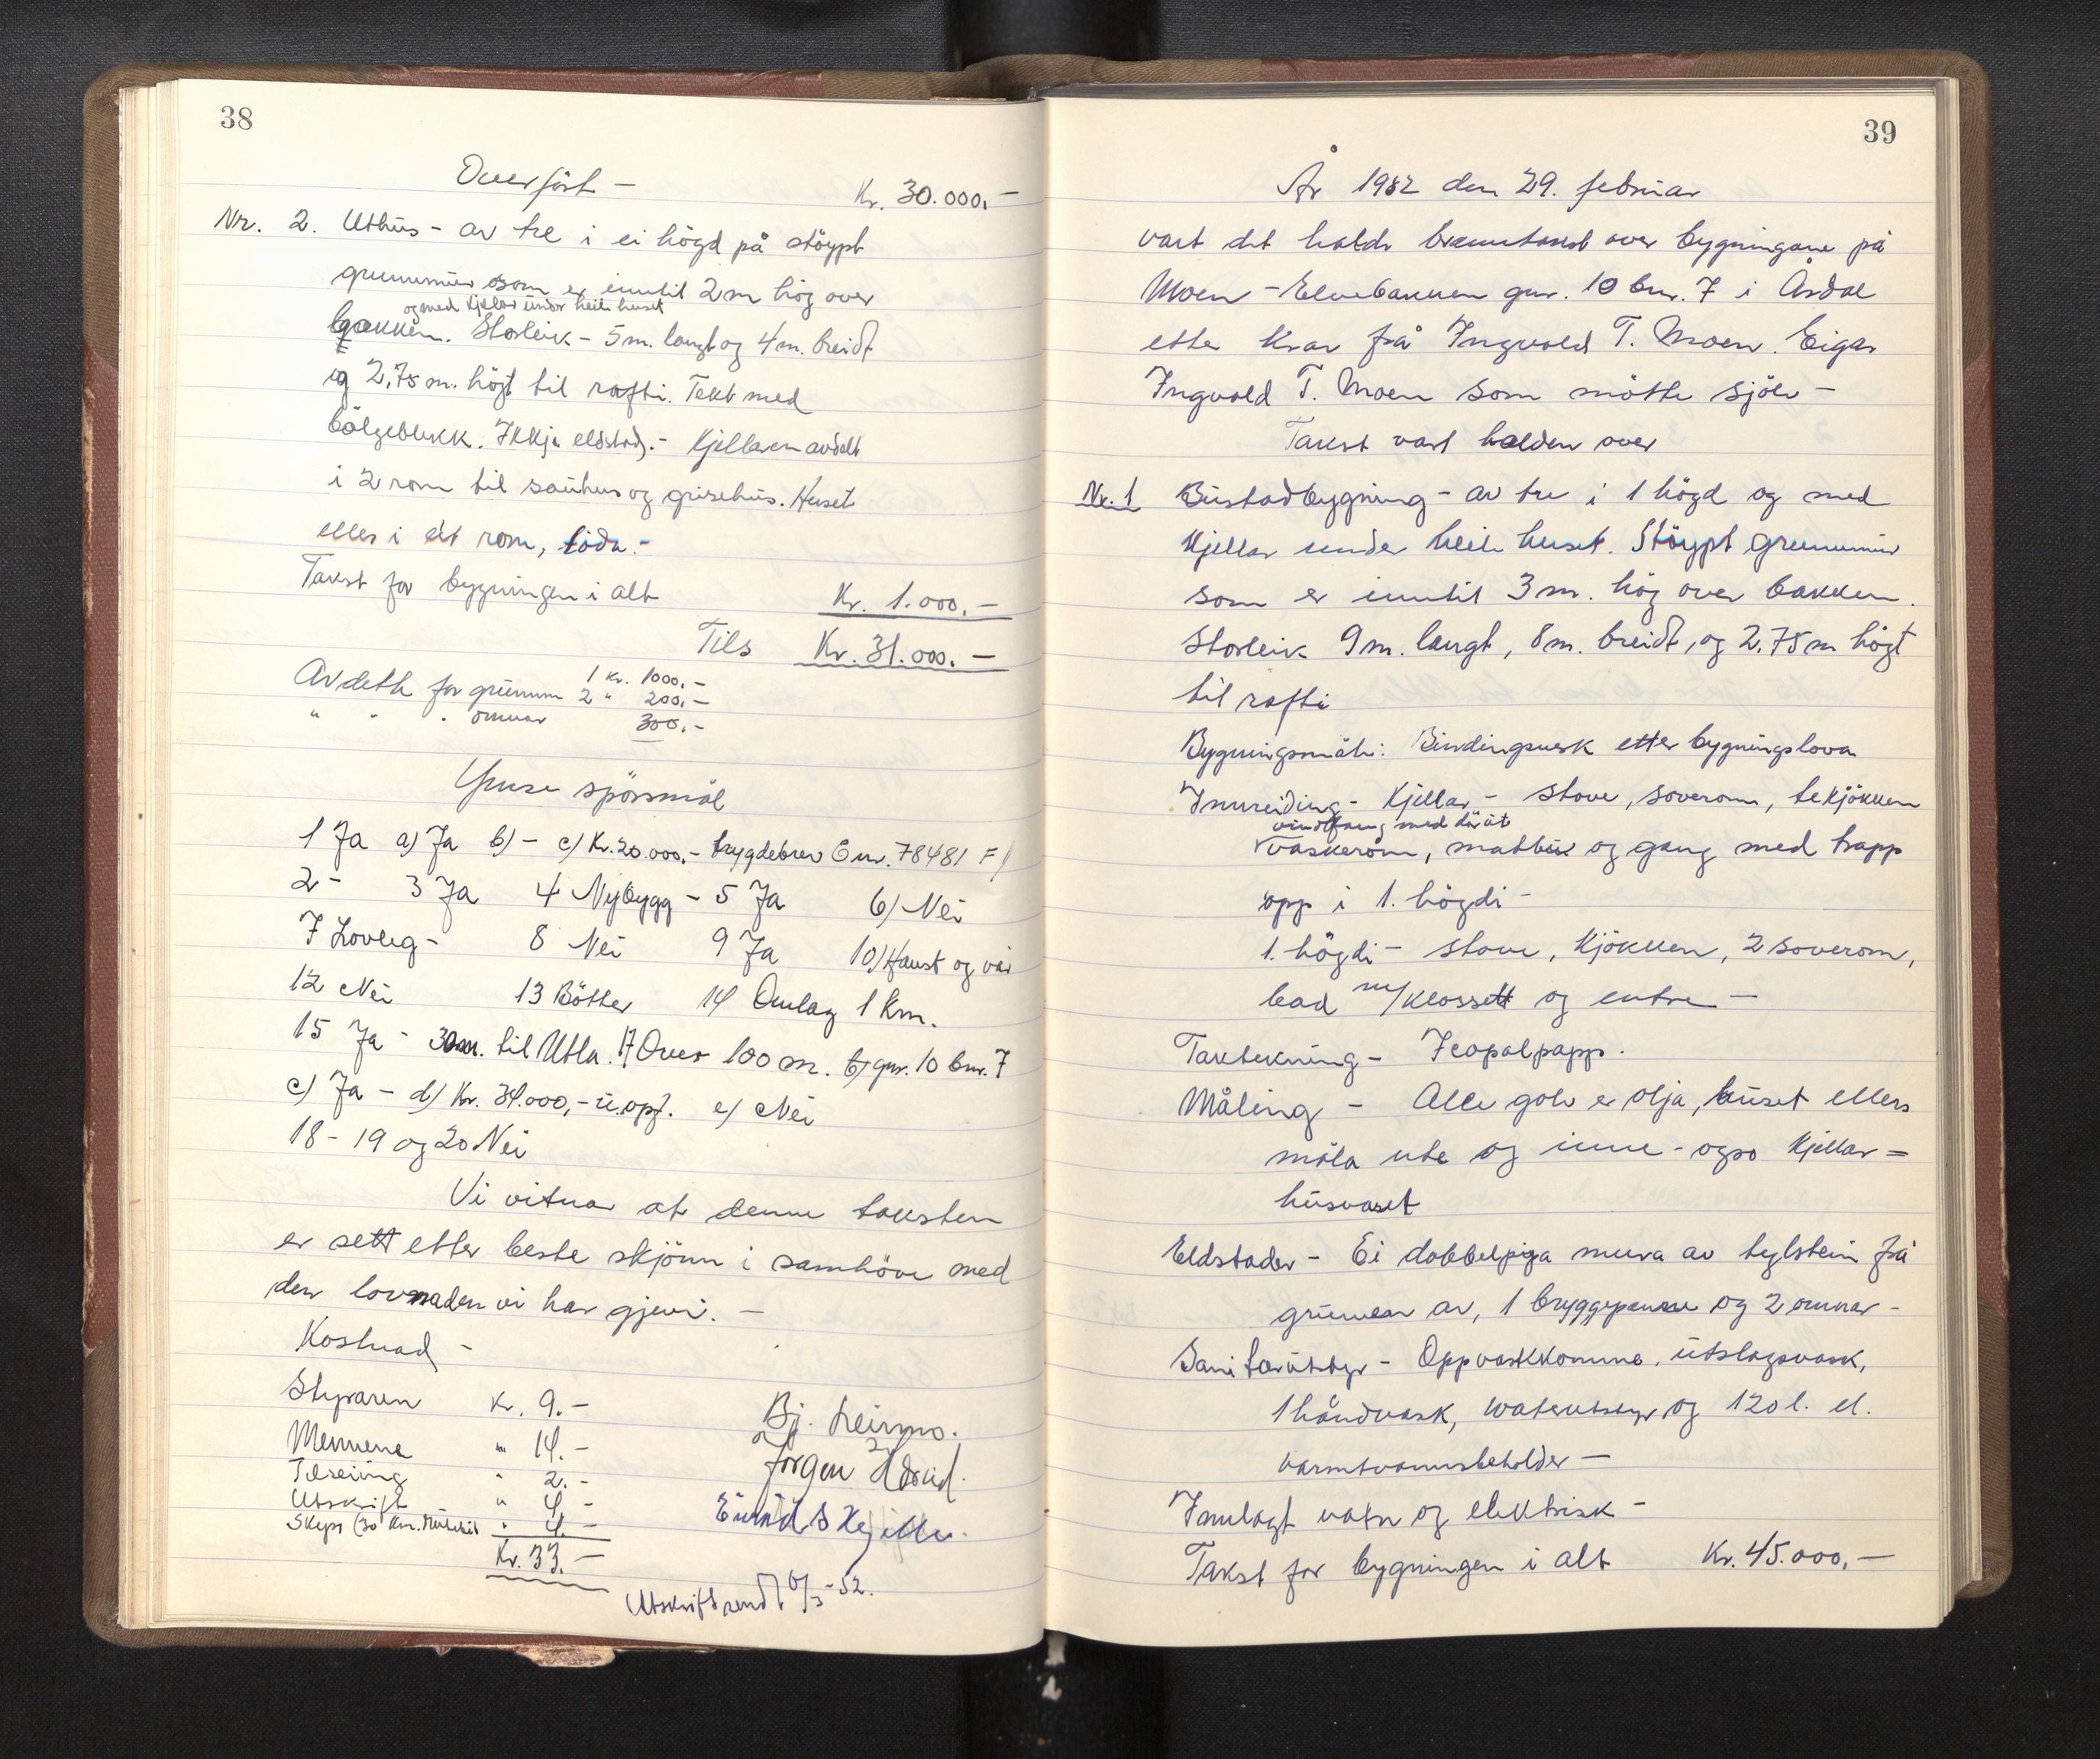 38
Overført –
Kr. 30.000,–
Nr. 2. Uthus – av tre i ei högd på stöypt
grunnmur som er inntil 2 m hög over
og med kjellar under heile huset
bakken. Storleik – 5 m. langt og 4 m. breidt
og 2,75 m. högt til rafti. Tekt med
bölgeblekk. Ikkje eldstad. – Kjellaren avdelt
i 2 rom til sauhus og grisehus. Huset
elles i eit rom, löda. –
Takst for bygningen i alt Kr. 1.000,–
Tils Kr. 31.000.–
Av dette for grunnm 1 Kr. 1000,–
2 " 200,–
" " " omnar 300,–
Ymse spörsmål
1 Ja a) Ja b) – c) Kr. 20.000,– trygdebrev E nr. 78481 F)
2 – 3 Ja 4 Nybygg – 5 Ja 6) Nei
7 Lovleg – 8 Nei 9 Ja 10) Haust og vår
12 Nei 13 Bötter 14 Omlag 1 km.
15 Ja – 30 m. til Utla. 17 Over 100 m. b) gnr. 10 bnr. 7
c) Ja – d) Kr. 31.000,– u. opf. e) Nei
18 – 19 og 20 Nei
Vi vitnar at denne taksten
er sett etter beste skjönn i samhöve med
den lovnaden vi har gjevi. –
Kostnad –
Styraren Kr. 9.–
Mennene " 14.–
Tilreiing " 2.–
Utskrift " 4.–
Skyss (30 km. " 4.–
Kr. 33.–
Bj. Leirmo.
Jørgen
Utskrift sendt 6/3 – 52.
39
År 1952 den 29. februar
vart det halde branntakst over bygningane på
Moen – Elvebakken gnr. 10 bnr. 7 i Årdal
etter krav frå Ingvald T. Moen. Eigar
Ingvald T. Moen som mötte sjölv –
Takst vart halden over
Nr. 1 Bustadbygning – av tre i 1 högd og med
kjellar under heile huset. Stöypt grunnmur
som er inntil 3 m. hög over bakken.
Storleik 9 m. langt, 8 m. breidt, og 2,75 m högt
til rafti
Bygningsmåte: Bindingsverk etter bygningslova
Innreiding – Kjellar – stove, soverom, tekjökken
vindfang med dör út
vaskerom, matbu og gang med trapp
opp i 1. högdi –
1. högdi – stove, kjökken, 2 soverom,
bad m/klossett og entre –
Taktekning – Icopalpapp.
Måling – Alle golv er olja, huset ellers
måla ute og inne – ogso kjellar =
husværet
Eldstader – Ei dobbelpipa mura av teglstein frå
grunnen av, 1 bryggepanne og 2 omnar –
Sanitærutstyr – Oppvaskkomme, utslagsvask,
1 håndvask, waterutstyr og 120 l. el.
varmtvannsbeholder –
Innlagt vatn og elektrisk –
Takst for bygningen i alt Kr. 45.000,–